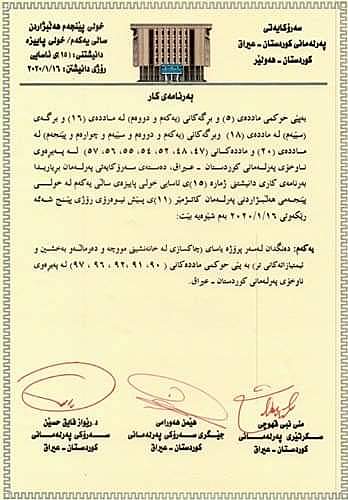 سەرۆکایەتی
پەرلەمانی کوردستان - عیراق
کوردستان - هەولێر
خولی پێنجەم هەڵبژاردن
ساڵی یەکەم/ خولی پاییزە
دانیشتنی: (١٥)ی ئاسایی
ڕۆژی دانیشتن: ٢٠٢٠/١/١٦
بەرنامەی کار
بەپێی حوکمی ماددەی (٥) و برگەکانی (یەکەم و دووەم) لە ماددەی (١٦) و برگەی
(سێیەم) لە ماددەی (١٨) وبرگەکانی (یەکەم و دووەم و سێیەم و چوارەم و پێنجەم) لە
ماددەی (٢٠) و ماددەکانی (٤٧، ٤٨، ٥٢، ٥٤، ٥٥، ٥٦، ٥٧) لە پەیرەوی
ناوخۆی پەرلەمانی کوردستان - عیراق، دەستەی سەرۆکایەتی پەرلەمان بڕیاریدا
بەرنامەی کاری دانیشتنی ژمارە (١٥)ی ئاسایی خولی پاییزەی ساڵی یەکەم لە خولی
پێنجەمی هەڵبژاردنی پەرلەمان کاتژمێر (١١)ی پێش نیوەڕۆی ڕۆژی پێنج شەممە
ڕێکەوتی ٢٠٢٠/١/١٦ بەم شێوەیە بێت:
یەکەم: دەنگدان لەسەر پرۆژە یاسای (چاکسازی لە خانەنشینی مووچە و دەرماڵەو بەخشین و
ئیمتیازاتەکانی تر) بە پێی حوکمی ماددەکانی (٩٠، ٩١، ٩٢، ٩٦، ٩٧) لە پەیرەوی
ناوخۆی پەرلەمانی کوردستان - عیراق.
منی نبی قهوچی
سکرتێری پەرلەمانی
کوردستان - عیراق
هێمن هەورامی
جێگری سەرۆکی پەرلەمانی
کوردستان - عیراق
د. رێواز فایق حسێن
سەرۆکی پەرلەمانی
کوردستان - عیراق